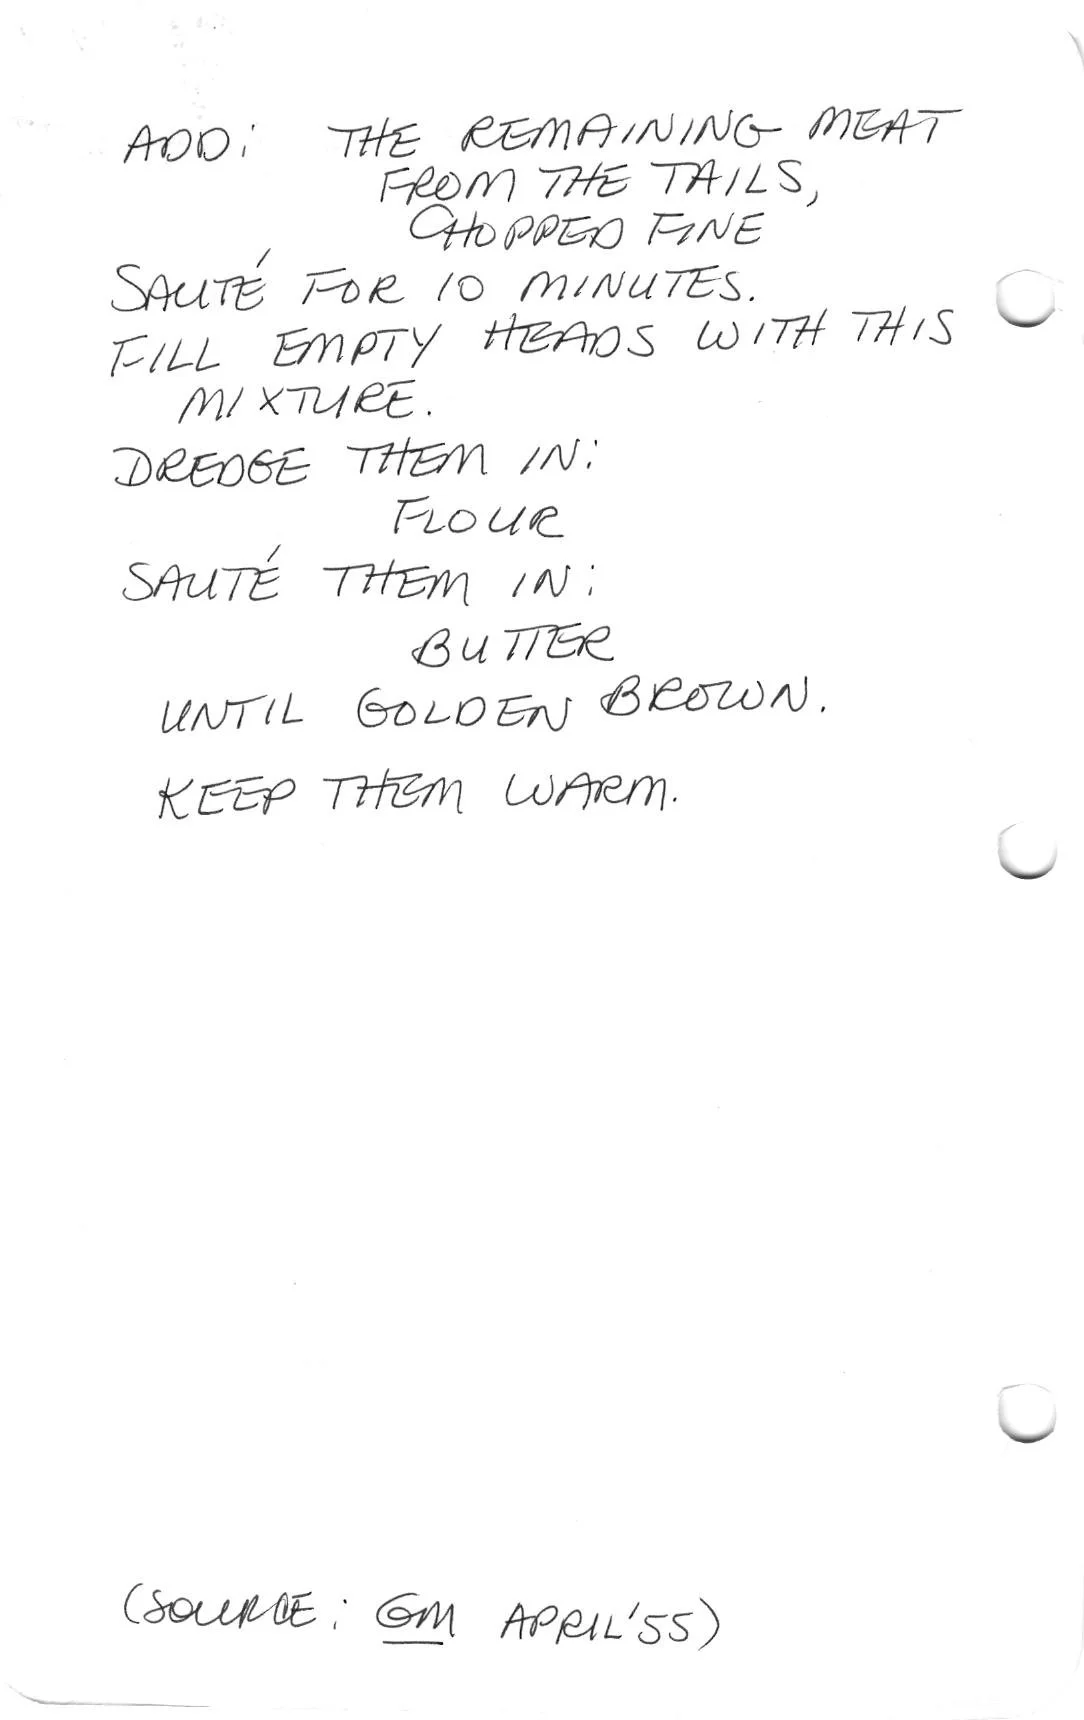 ADD: THE REMAINING MEAT
FROM THE TAILS,
CHOPPED FINE
SAUTÉ FOR 10 MINUTES.
FILL EMPTY HEADS WITH THIS
MIXTURE.
DREDGE THEM IN:
FLOUR
SAUTÉ THEM IN:
BUTTER
UNTIL GOLDEN BROWN.
KEEP THEM WARM.
(SOURCE: GM APRIL '55)